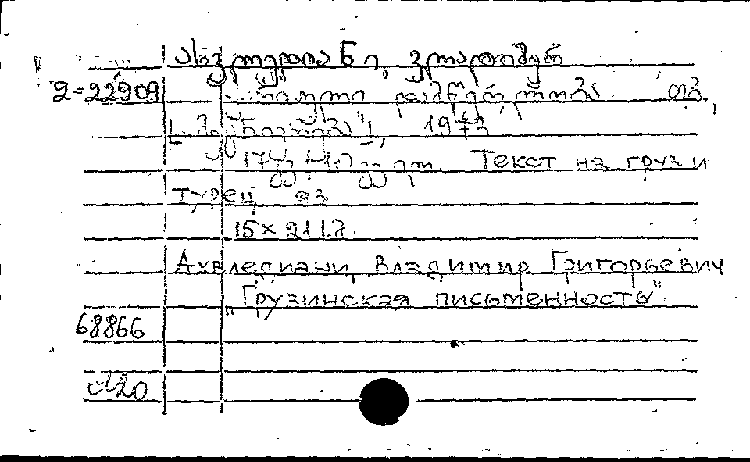 ახვლედიანი, ვლადიმერ
2-22909 ქართული დამწერლობა თბ.,
["მეცნიერება"], 1973
174 გვ. Текст на груз и
турец яз
15×21 1 л.
Ахвледиани, Владимир Григорьевич
„Грузинская письменность"
68866